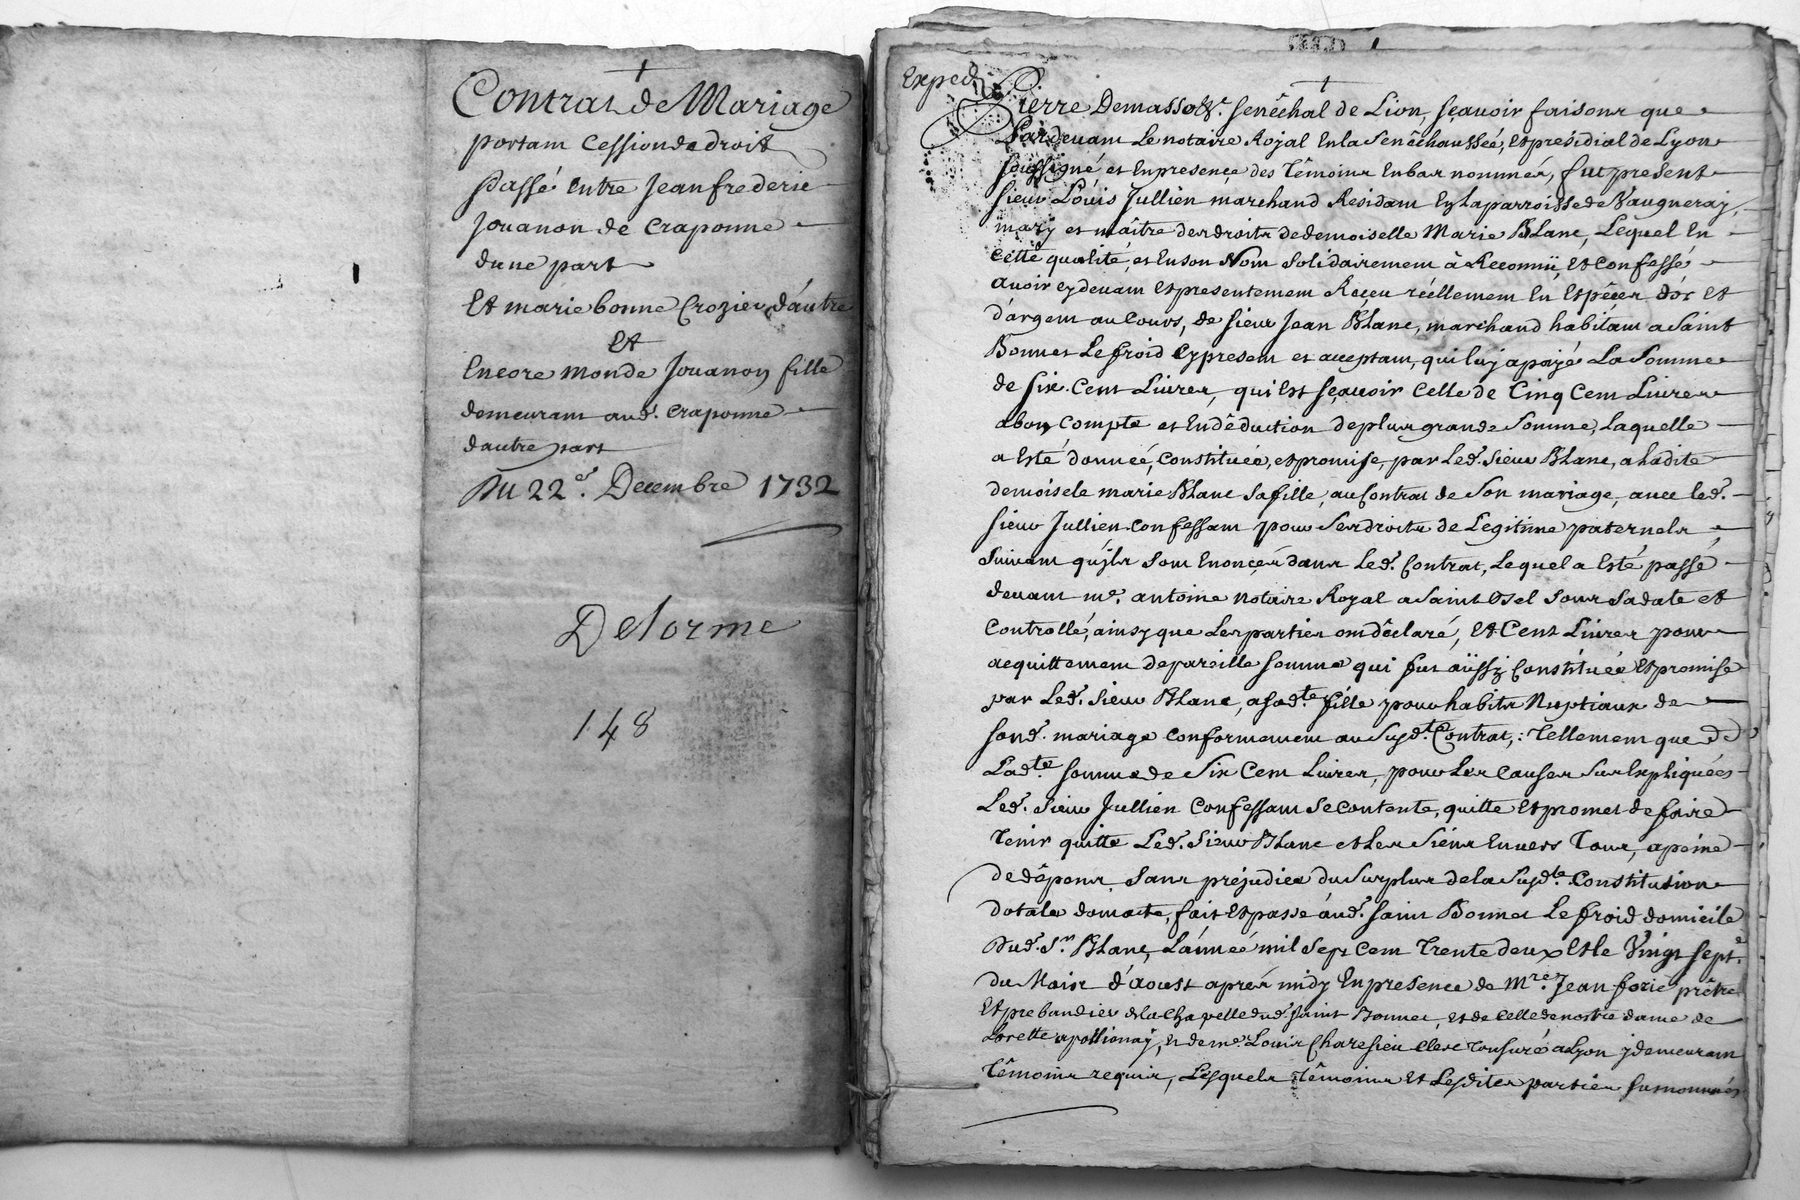 Contrat de Mariage
portant Cession de droit
Passé Entre Jean frederic
Jouanon de Craponne
dune part
Et marie bonne Crozier d'autre
Et
Encore monde Jouanon fille
demeurant aud. Craponne
dautre part
Du 22e. Decembre 1732
Delorme
148
Exped.
Pierre Demasso &c. senêchal de Lion, sçavoir faisons que
Pardevant Le notaire Royal En la Senêchaussée, et présidial de Lyon
soussigné et En presence des Têmoins En bas nommés, fut present
sieur Loüis Jullien marchand Residant En la parroisse de Vaugneray,
mary et maître des droits de demoiselle Marie Blanc, Lequel En
cette qualité, et En son Nom solidairement â Reconnü, et Confessé
avoir cydevant et presentement Reçeu réellement En Espéces d'or et
d'argent au Cours, de sieur Jean Blanc, marchand habitant a Saint
Bonnet Le froid Cy present et acceptant, qui luy a payé La Somme
de six Cent Livres, qui Est sçavoir Celle de Cinq Cent Livres
a bon Compte et En dêduction de plus grande Somme, Laquelle
a Esté donneé, Constituée, et promise, par Led. Sieur Blanc, a ladite
demoisele marie Blanc Sa fille, au Contrat de Son mariage, avec led.
sieur Jullien Confessant pour Ses droits de Legitime paternels
Suivant qu'jls sont Enoncés dans Led. Contrat, Lequel a Esté passé
devant me. antoine notaire Royal a Saint Bel Sous Sa date et
Controllé, ainsy que Les parties ont dêclaré, Et Cent Livres pour
acquittement de pareille somme qui fut aüssy Constituée et promise
par Led. sieur Blanc, a sad.te fille pour habits Nuptiaux de
sond. mariage Conformement au Susd.t Contrat,: Tellement que de
Lad.te somme de Six Cent Livres, pour Les Causes Sus Expliquées
Led. sieur Jullien Confessant Se Contente, quitte et promet de faire
tenir quitte Led. Sieur Blanc et Les Siens Envers Tous, a peine
de dêpens, Sans préjudice du Surplus de la Susd.te Constitution
dotale dont acte, fait et passé aud. Saint Bonnet Le froid domicile
Dud. Sr. Blanc, L'année mil Sept Cent Trente deux et le Vingt Sept.e
du Mois d'aoust aprés midy En presence de Mre. Jean forie prêtre
Et prebandier de la Chapelle dud. Saint Bonnet, et de Celle de nostre dame de
Lorette a pollionay, et de me. Louis Charesieu Clerc Tonsuré a Lyon y demeurant
Têmoins requis, Lesquels Têmoins Et Lesdites parties susnommés